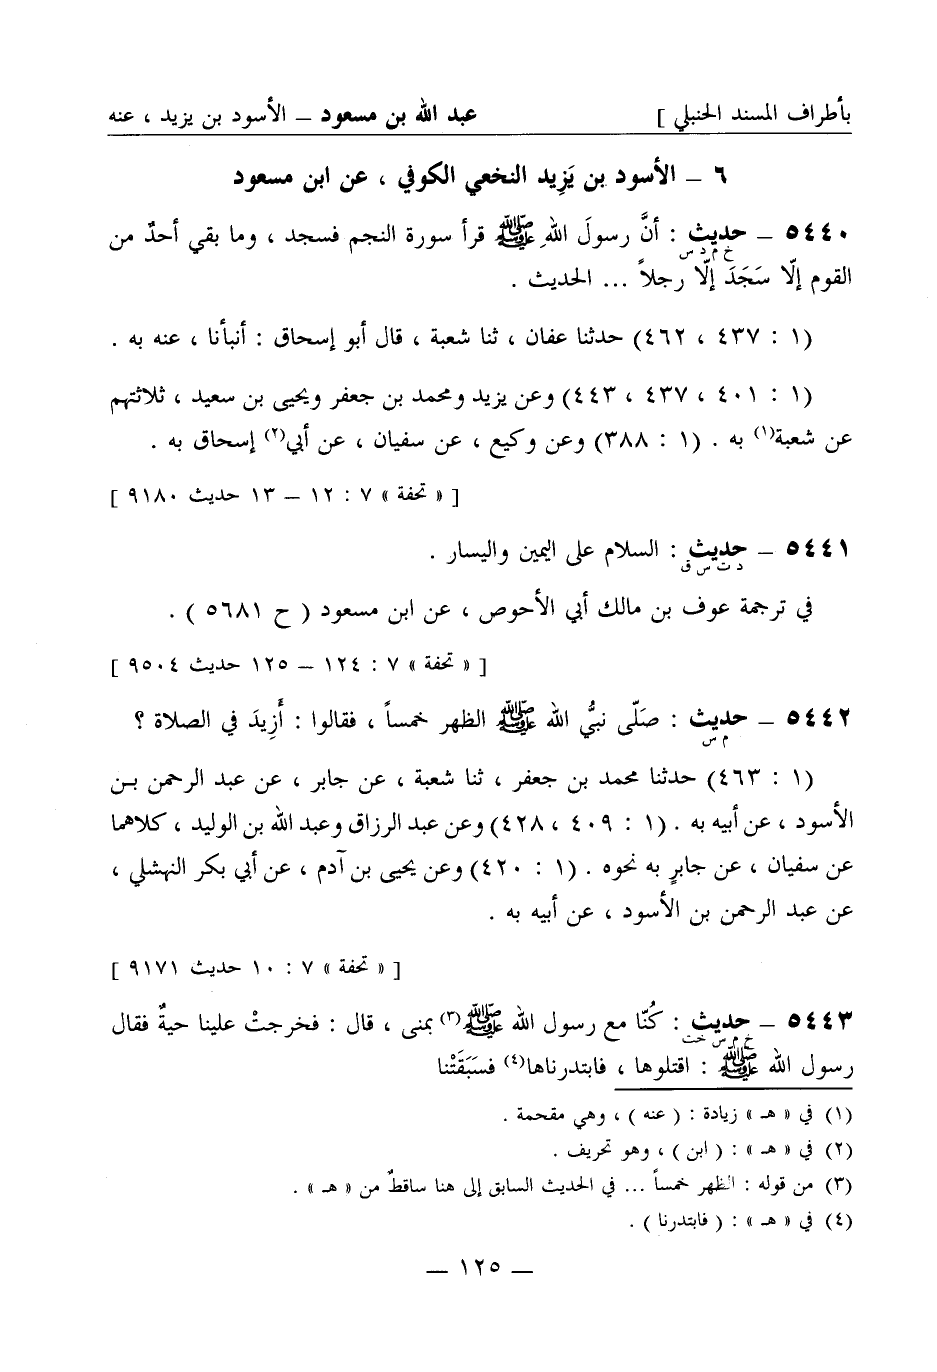 بأطراف المسند الحنبلي ] عبد الله بن مسعود – الأسود بن يزيد ، عنه
٦ – الأسود بن يَزِيد النخعي الكوفي ، عن ابن مسعود
٥٤٤٠ – حديث : أنَّ رسولَ اللهِ ﷺ قرأ سورة النجم فسجد ، وما بقي أحدٌ من
خ م د س
القوم إلّا سَجَدَ إلّا رجلاً ... الحديث .
(١ : ٤٣٧ ، ٤٦٢) حدثنا عفان ، ثنا شعبة ، قال أبو إسحاق : أنبأنا ، عنه به .
(١ : ٤٠١ ، ٤٣٧ ، ٤٤٣) وعن يزيد ومحمد بن جعفر ويحيى بن سعيد ، ثلاثتهم
عن شعبة(١) به . (١ : ٣٨٨) وعن وكيع ، عن سفيان ، عن أبي(٢) إسحاق به .
[ « تحفة » ٧ : ١٢ – ١٣ حديث ٩١٨٠ ]
٥٤٤١ – حديث : السلام على اليمين واليسار .
د ت س ق
في ترجمة عوف بن مالك أبي الأحوص ، عن ابن مسعود ( ح ٥٦٨١ ) .
[ « تحفة » ٧ : ١٢٤ – ١٢٥ حديث ٩٥٠٤ ]
٥٤٤٢ – حديث : صَلّى نبيُّ الله ﷺ الظهر خمساً ، فقالوا : أَزِيدَ في الصلاة ؟
م س
(١ : ٤٦٣) حدثنا محمد بن جعفر ، ثنا شعبة ، عن جابر ، عن عبد الرحمن بن
الأسود ، عن أبيه به . (١ : ٤٠٩ ، ٤٢٨) وعن عبد الرزاق وعبد الله بن الوليد ، كلاهما
عن سفيان ، عن جابرٍ به نحوه . (١ : ٤٢٠) وعن يحيى بن آدم ، عن أبي بكر النهشلي ،
عن عبد الرحمن بن الأسود ، عن أبيه به .
[ « تحفة » ٧ : ١٠ حديث ٩١٧١ ]
٥٤٤٣ – حديث : كُنّا مع رسول الله ﷺ(٣) بمنى ، قال : فخرجتْ علينا حيةٌ فقال
خ م س خت
رسول الله ﷺ : اقتلوها ، فابتدرناها(٤) فسَبَقَتْنا
(١) في « هـ » زيادة : ( عنه ) ، وهي مقحمة .
(٢) في « هـ » : ( ابن ) ، وهو تحريف .
(٣) من قوله : الظهر خمساً ... في الحديث السابق إلى هنا ساقطٌ من « هـ » .
(٤) في « هـ » : ( فابتدرنا ) .
– ١٢٥ –